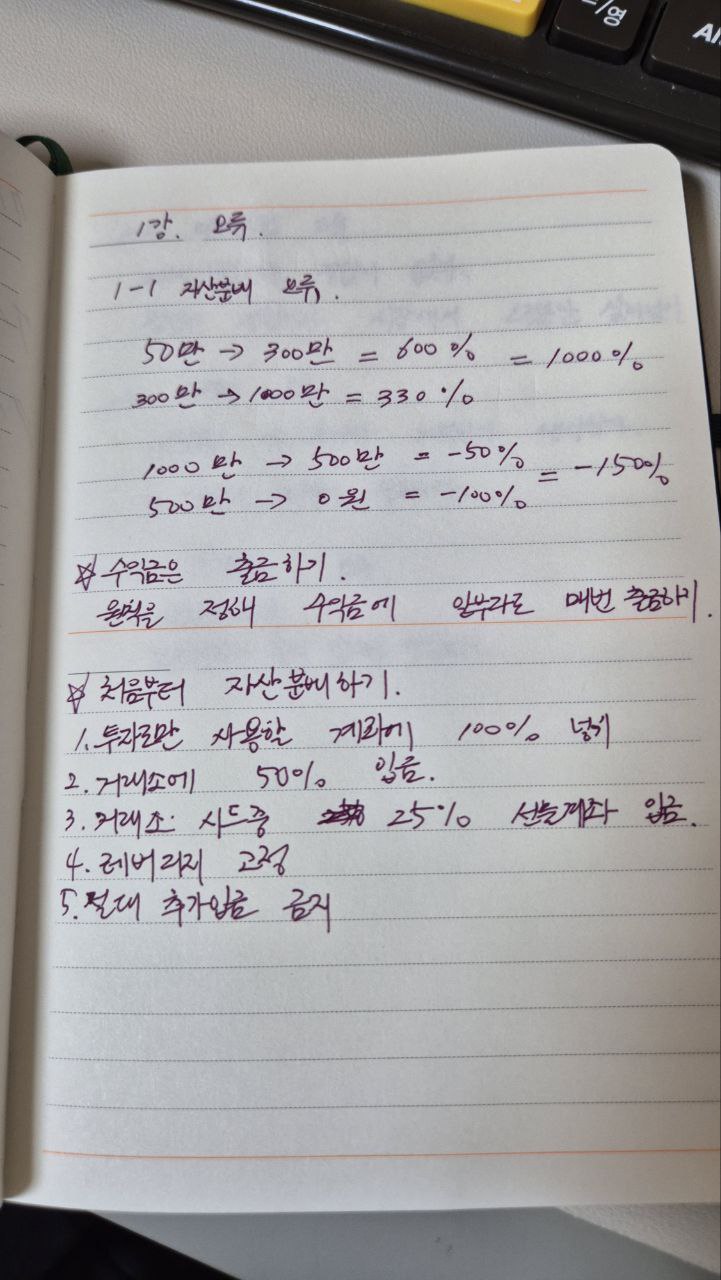 /영
Al
1강. 오류.
1-1 자산분배 오류.
50만 → 300만 = 600% = 1000%
300만 → 1000만 = 330%
1000만 → 500만 = -50% = -150%
500만 → 0원 = -100%
☆ 수익금은 출금하기.
원칙을 정해 수익금에 일부라도 매번 출금하기.
☆ 처음부터 자산분배하기.
1. 투자로만 사용할 계좌에 100% 넣기
2. 거래소에 50% 입금.
3. 거래소 시드중 25% 선물계좌 입금.
4. 레버리지 고정
5. 절대 추가입금 금지